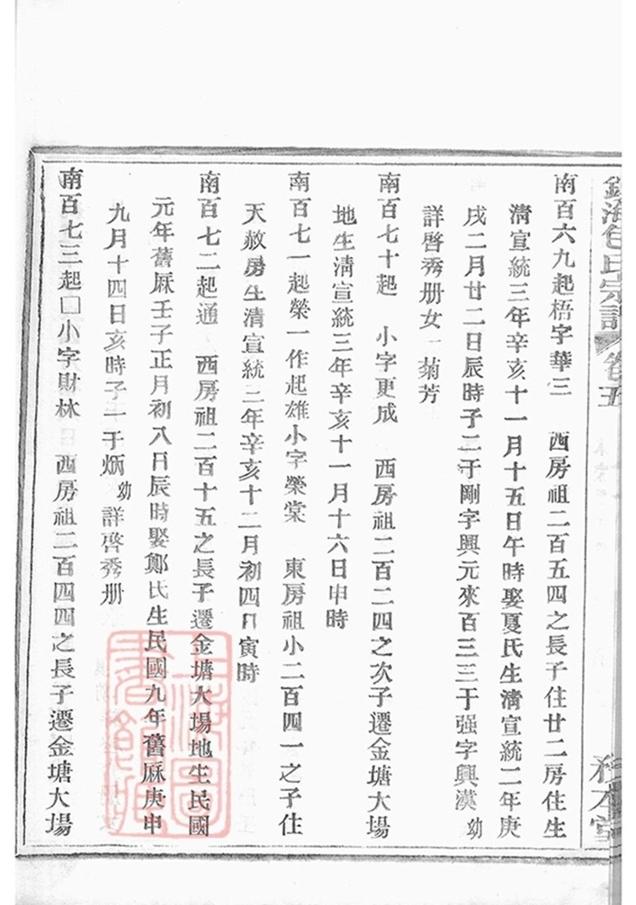 鎮海包氏宗譜 卷五
南百六九起梧字華三 西房祖二百五四之長子住廿二房住生
清宣統三年辛亥十一月十五日午時娶夏氏生清宣統二年庚
戌二月廿二日辰時子二于剛字興元來百三三于强字興漢幼
詳啓秀册女一菊芳
南百七十起 小字更成 西房祖二百二四之次子遷金塘大場
地生清宣統三年辛亥十一月十六日申時
南百七一起榮一作起雄小字榮棠 東房祖小二百四一之子住
天赦房生清宣統三年辛亥十二月初四日寅時
南百七二起通 西房祖二百十五之長子遷金塘大場地生民國
元年舊厤壬子正月初八日辰時娶鄭氏生民國九年舊厤庚申
九月十四日亥時子一于炳幼詳啓秀册
南百七三起□小字財林 西房祖二百四四之長子遷金塘大場